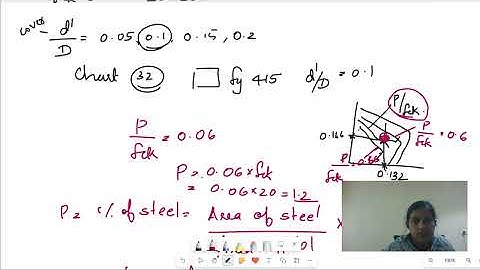 cover - d'/D = 0.05, 0.1, 0.15, 0.2
Chart 32 fy 415 d'/D = 0.1
P/fck = 0.06
P = 0.06 × fck
= 0.06 × 20 = 1.2
P = % of steel = Area of steel ×
P/fck
0.166
P/fck = 0.6
P/fck = 0.06
0.132